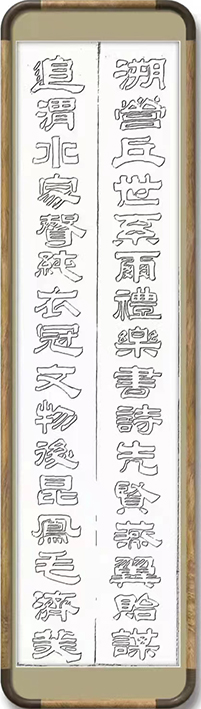 溯營丘世系爾禮樂書詩先賢燕翼貽謀
追渭水家聲純衣冠文物後昆鳳毛濟美